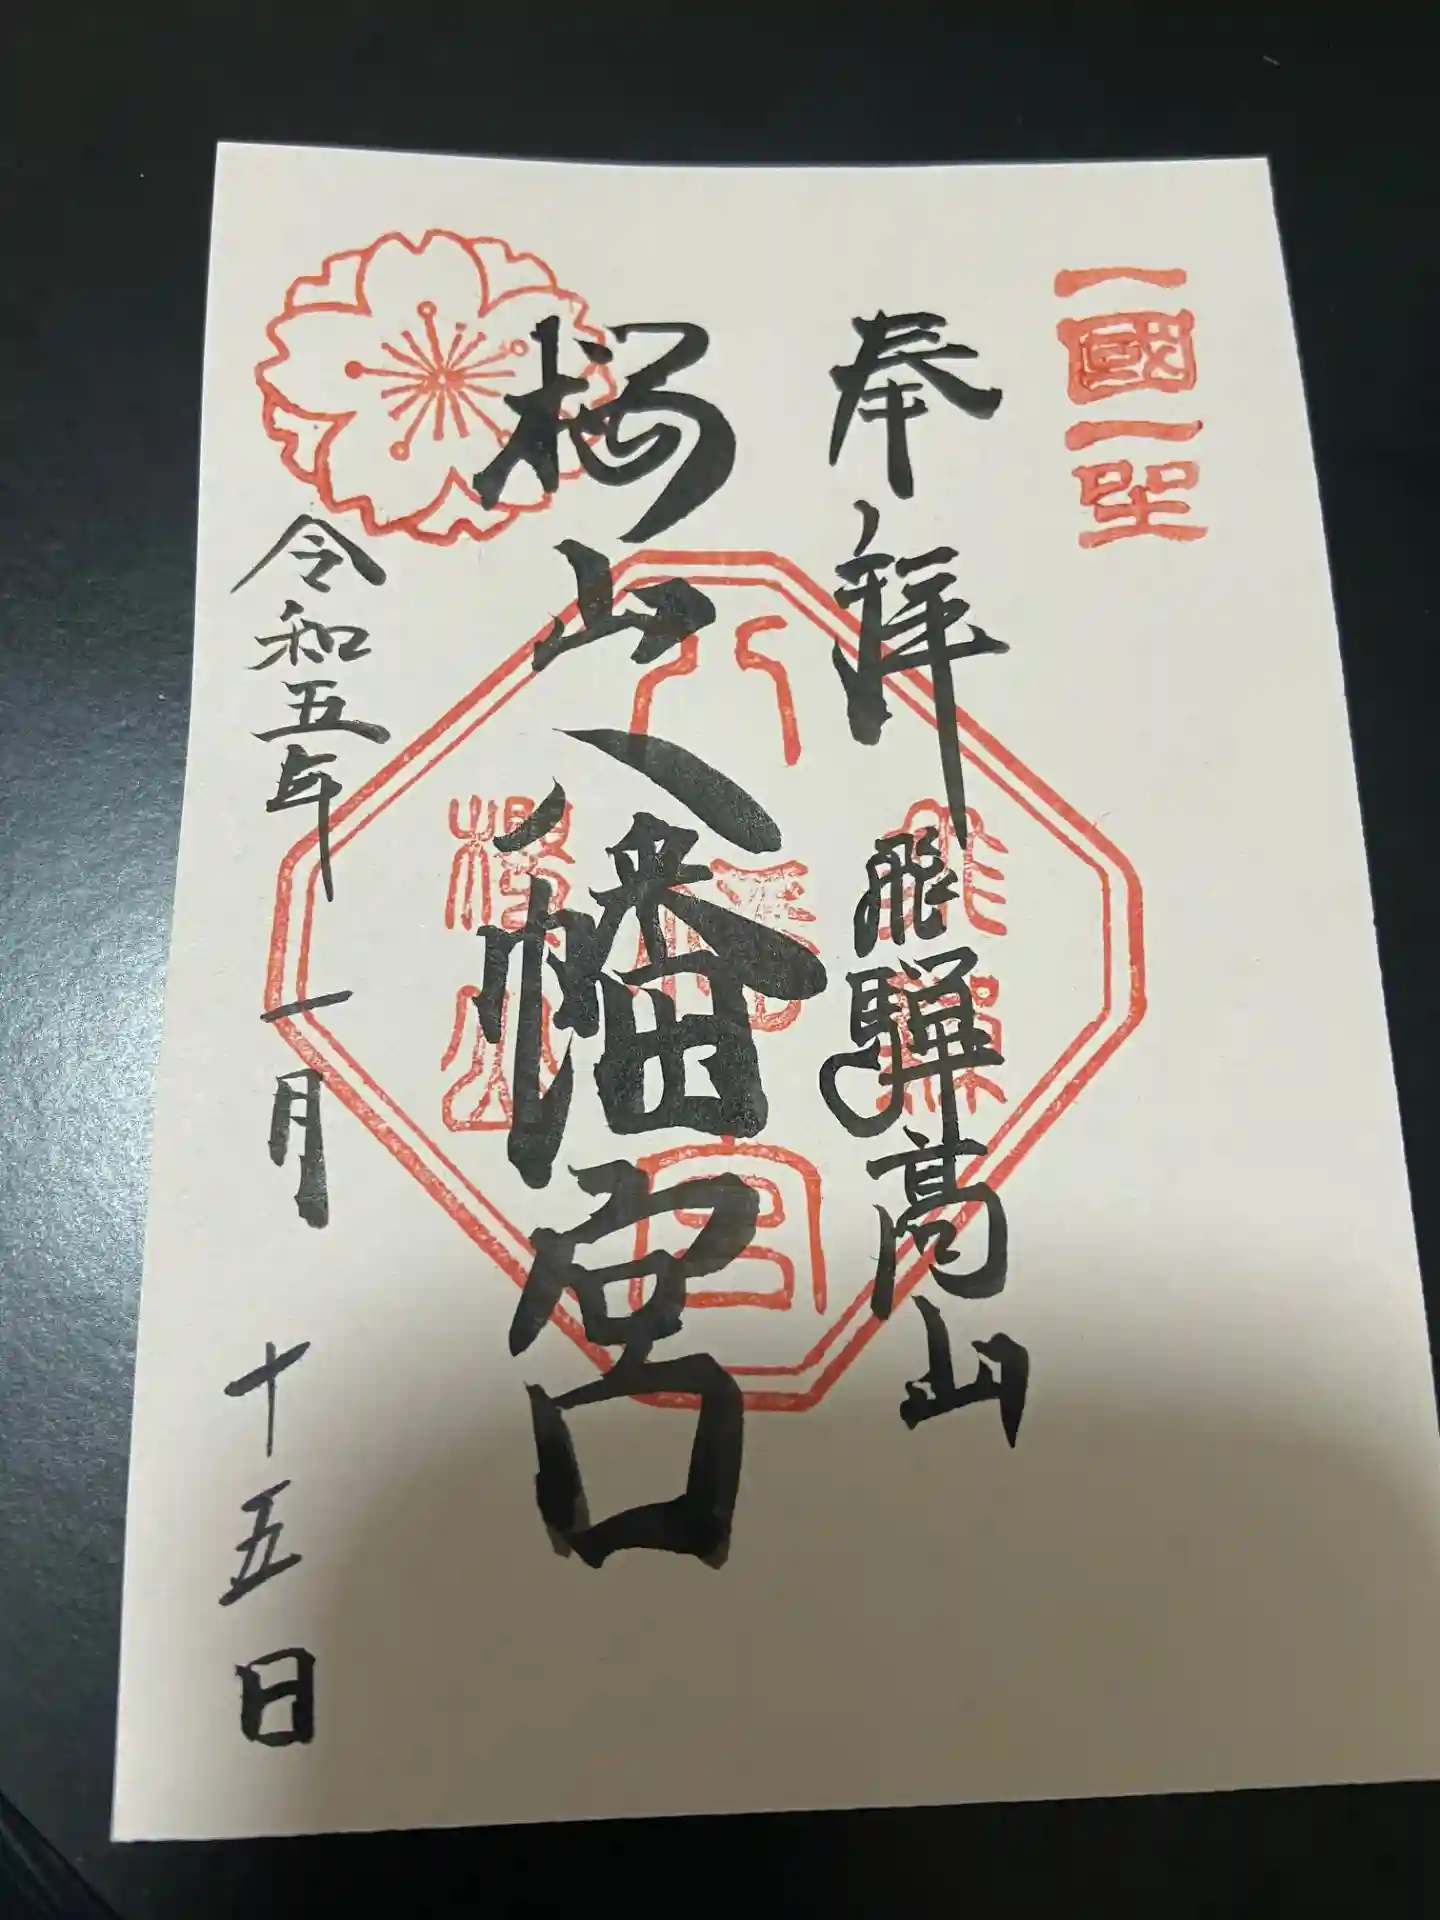 一國一社
奉拝 飛騨高山
桜山八幡宮
飛騨
八幡宮
櫻山
令和五年一月十五日